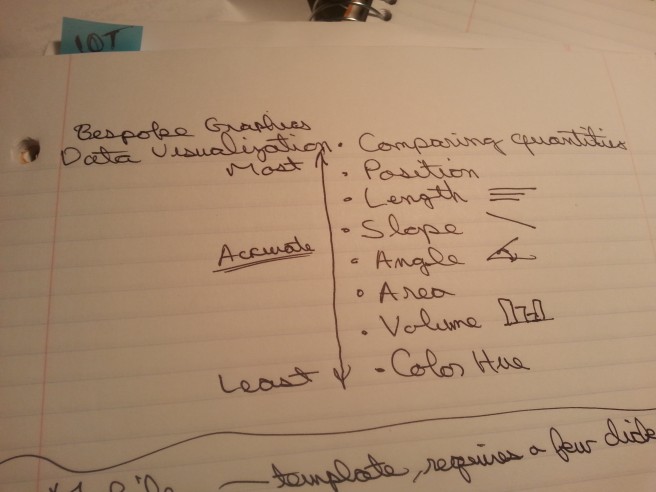 IOT
Bespoke Graphics
Data Visualization
Most
Accurate
Least
• Comparing quantities
• Position
• Length
• Slope
• Angle
• Area
• Volume
• Color Hue
template, requires a few